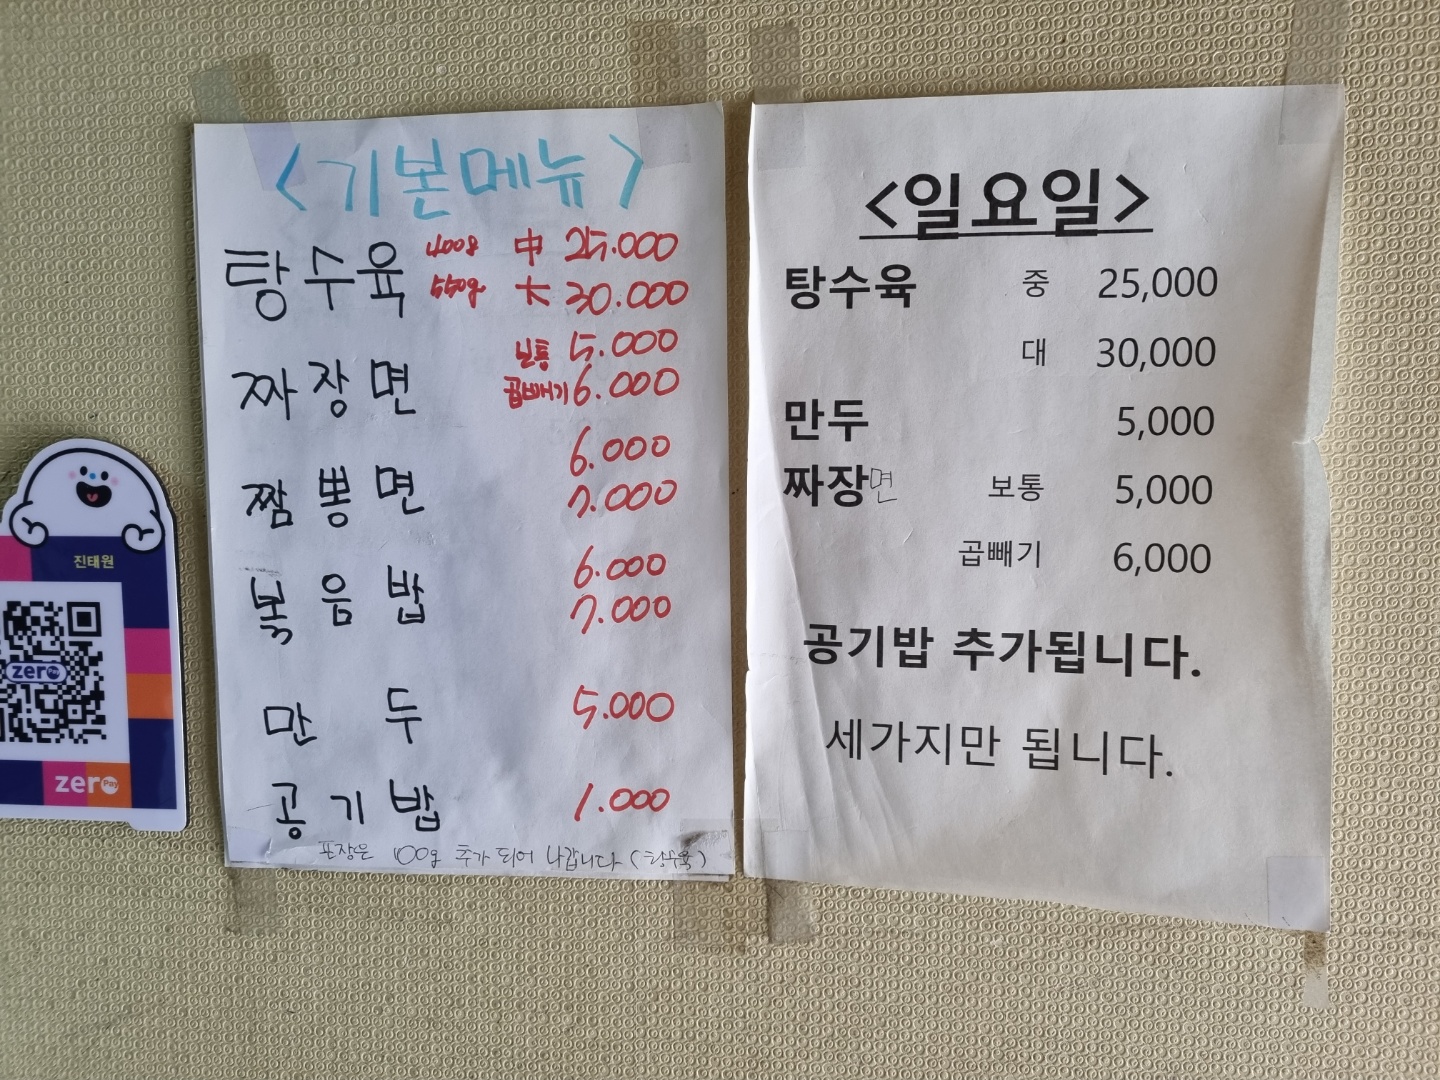 <기본메뉴>
탕수육 400g 中 25.000
550g 大 30.000
짜장면 보통 5.000
곱빼기 6.000
짬뽕면 6.000
7.000
볶음밥 6.000
7.000
만두 5.000
공기밥 1.000
포장은 100g 추가 되어 나갑니다 (탕수육)
<일요일>
탕수육 중 25,000
대 30,000
만두 5,000
짜장면 보통 5,000
곱빼기 6,000
공기밥 추가됩니다.
세가지만 됩니다.
진태원
zero
zero Pay